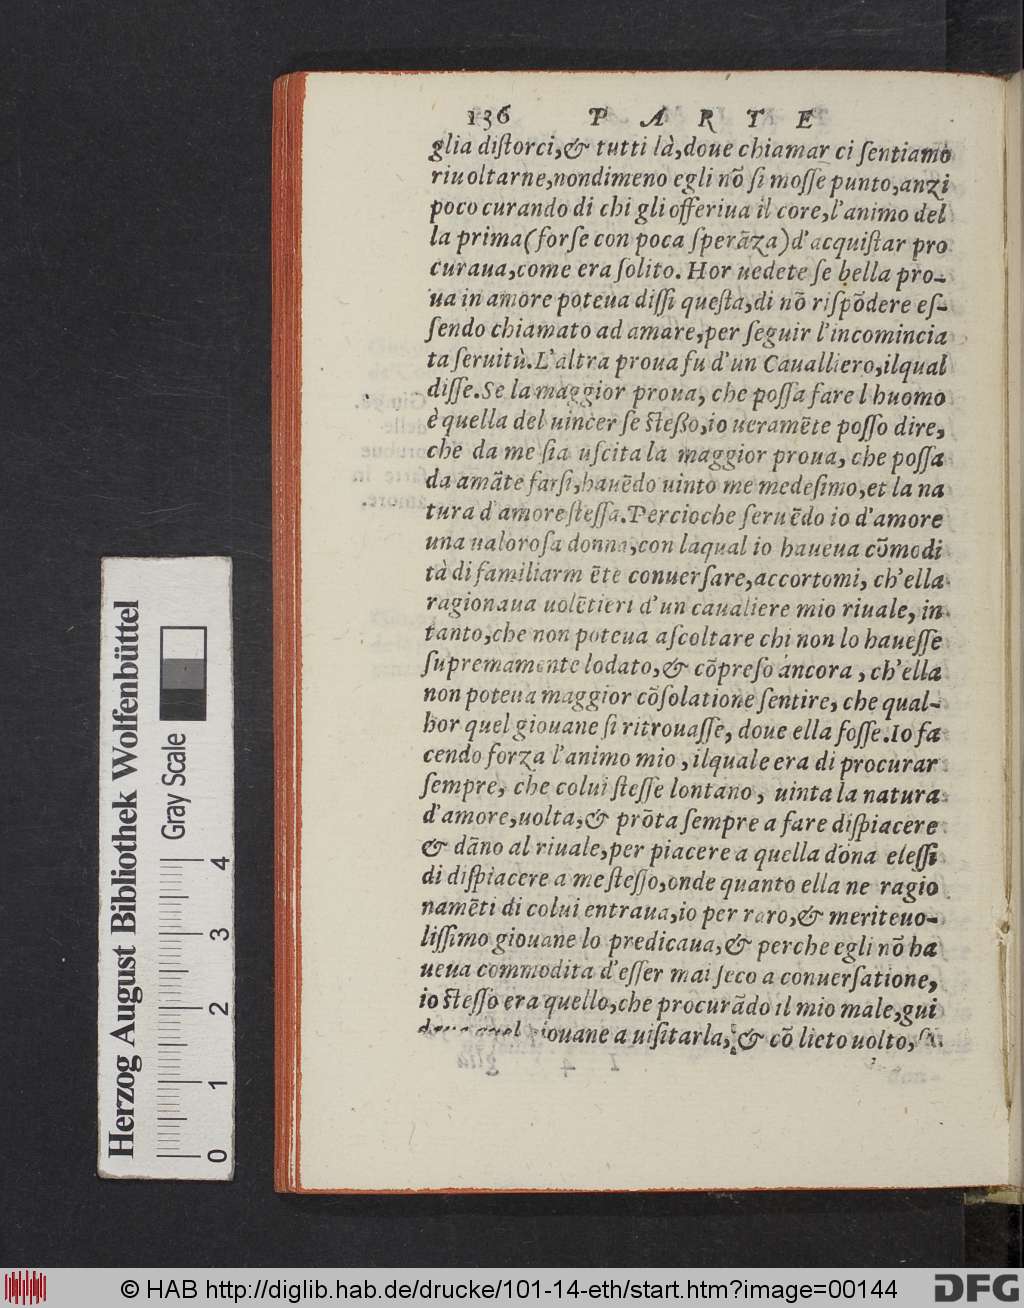 136 PARTE
glia distorci,& tutti là,doue chiamar ci sentiamo
riuoltarne,nondimeno egli nõ si mosse punto,anzi
poco curando di chi gli offeriua il core,l'animo del
la prima(forse con poca sperãza)d'acquistar pro
curaua,come era solito. Hor uedete se bella pro-
ua in amore poteua dissi questa,di nõ rispõdere es-
sendo chiamato ad amare,per seguir l'incomincia
ta seruitù.L'altra proua fu d'un Caualliero,ilqual
disse.Se la maggior proua, che possa fare l huomo
è quella del uincer se stesso,io ueramẽte posso dire,
che da me sia uscita la maggior proua, che possa
da amãte farsi,hauẽdo uinto me medesimo,et la na
tura d'amore stessa.Percioche seruẽdo io d'amore
una ualorosa donna,con laqual io haueua cõmodi
tà di familiarm ẽte conuersare,accortomi, ch'ella
ragionaua uolẽtieri d'un caualiere mio riuale, in
tanto,che non poteua ascoltare chi non lo hauesse
supremamente lodato,& cõpreso ancora, ch'ella
non poteua maggior cõsolatione sentire, che qual-
hor quel giouane si ritrouasse, doue ella fosse.Io fa
cendo forza l'animo mio, ilquale era di procurar
sempre, che colui stesse lontano, uinta la natura
d'amore,uolta,& prõta sempre a fare dispiacere
& dãno al riuale,per piacere a quella dõna elessi
di dispiacere a me stesso,onde quanto ella ne ragio
namẽti di colui entraua,io per raro,& meriteuo-
lissimo giouane lo predicaua,& perche egli nõ ha
ueua commodita d'esser mai seco a conuersatione,
io stesso era quello,che procurãdo il mio male,gui
giouane a uisitarla,& cõ lieto uolto,
Herzog August Bibliothek Wolfenbüttel
Gray Scale
0 1 2 3 4
© HAB http://diglib.hab.de/drucke/101-14-eth/start.htm?image=00144
DFG